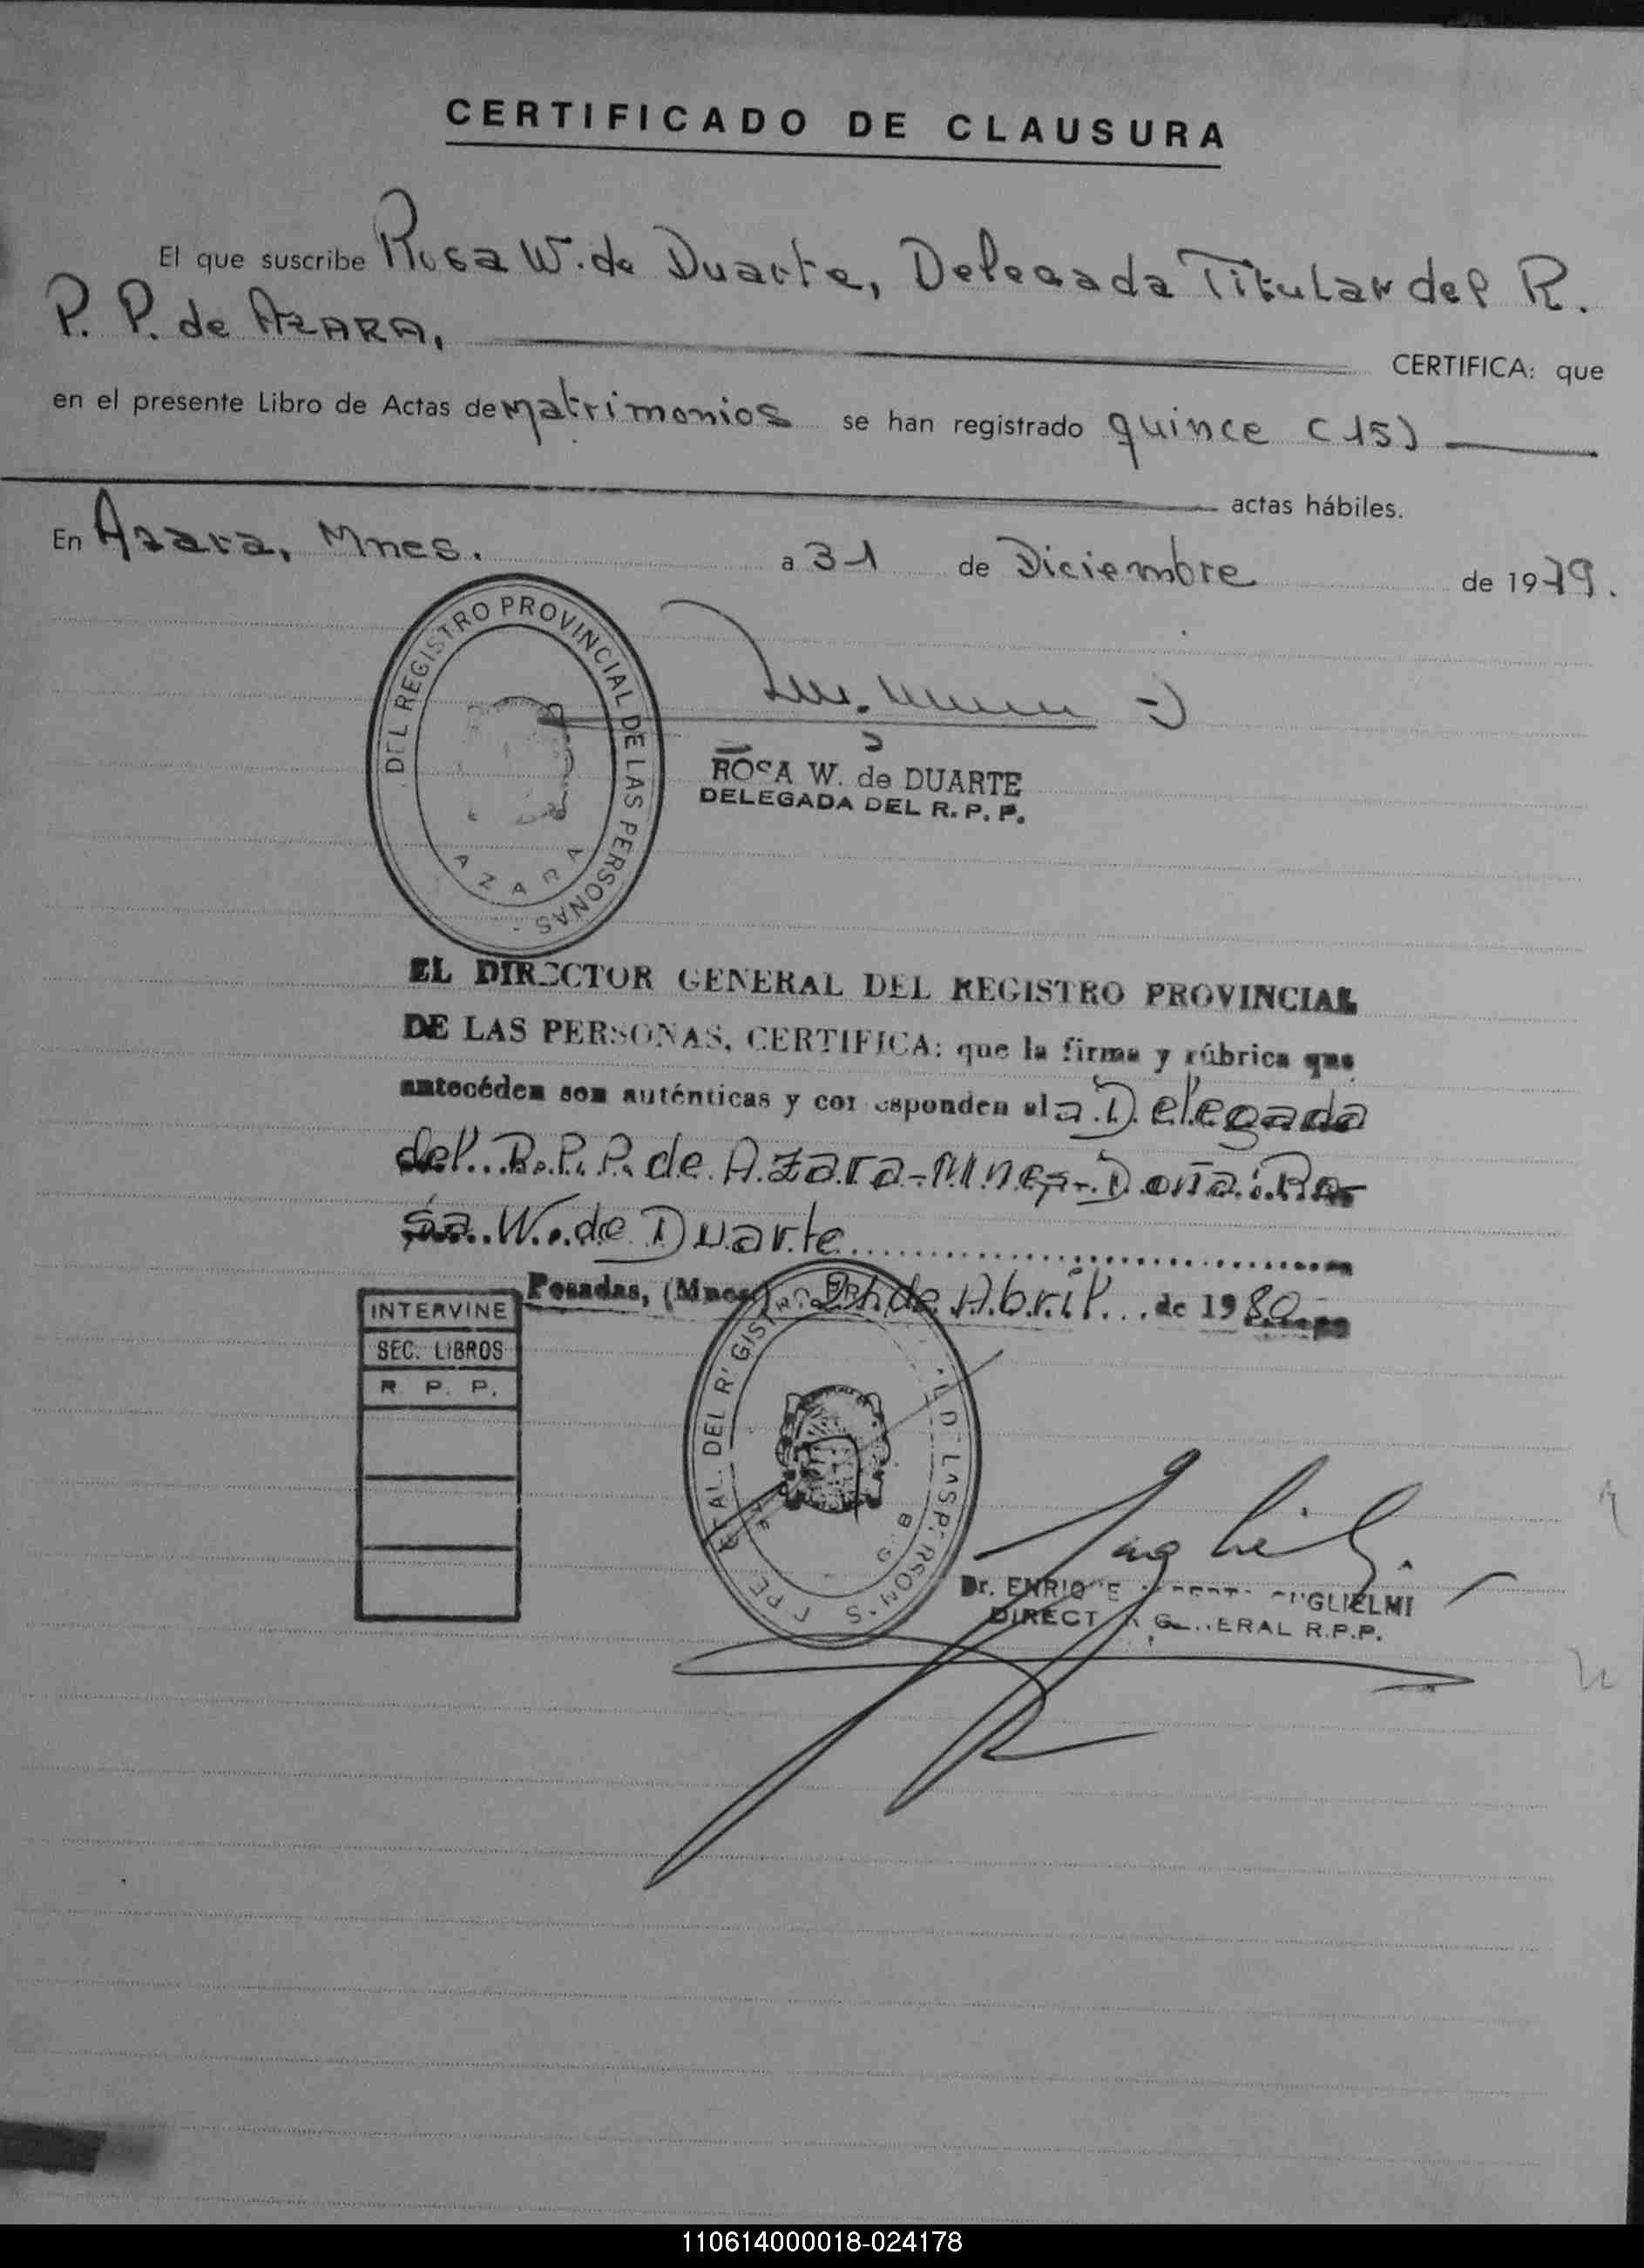 CERTIFICADO DE CLAUSURA
El que suscribe Rosa W. de Duarte, Delegada Titular del R.
P. P. de AZARA, CERTIFICA: que
en el presente Libro de Actas de Matrimonios se han registrado quince (15)
actas hábiles.
En Azara, Mnes. a 31 de Diciembre de 1979.
DEL REGISTRO PROVINCIAL DE LAS PERSONAS
AZARA
ROSA W. de DUARTE
DELEGADA DEL R. P. P.
EL DIRECTOR GENERAL DEL REGISTRO PROVINCIAL
DE LAS PERSONAS, CERTIFICA: que la firma y rúbrica que
antecéden son auténticas y corresponden al a Delegada
del R. P. P. de Azara-Mnes-Doña: Ro-
sa W. de Duarte
Posadas, (Mnes) de Abril de 1980
INTERVINE
SEC. LIBROS
R. P. P.
DEL REGISTRO DE LAS PERSONAS
Dr. ENRIQUE GUGLIELMI
DIRECTOR GENERAL R.P.P.
110614000018-024178